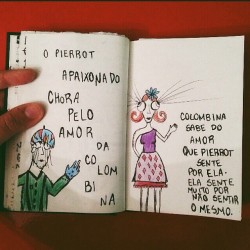 O PIERROT
APAIXONADO
CHORA
PELO
AMOR
DA
COLOM
BI
NA
COLOMBINA
SABE DO
AMOR
QUE PIERROT
SENTE
POR ELA.
ELA SENTE
MUITO POR
NÃO SENTIR
O MESMO.